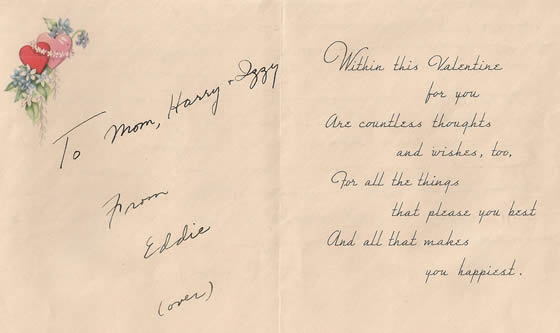 To Mom, Harry + Izzy
From
Eddie
(over)
Within this Valentine
for you
Are countless thoughts
and wishes, too,
For all the things
that please you best
And all that makes
you happiest.